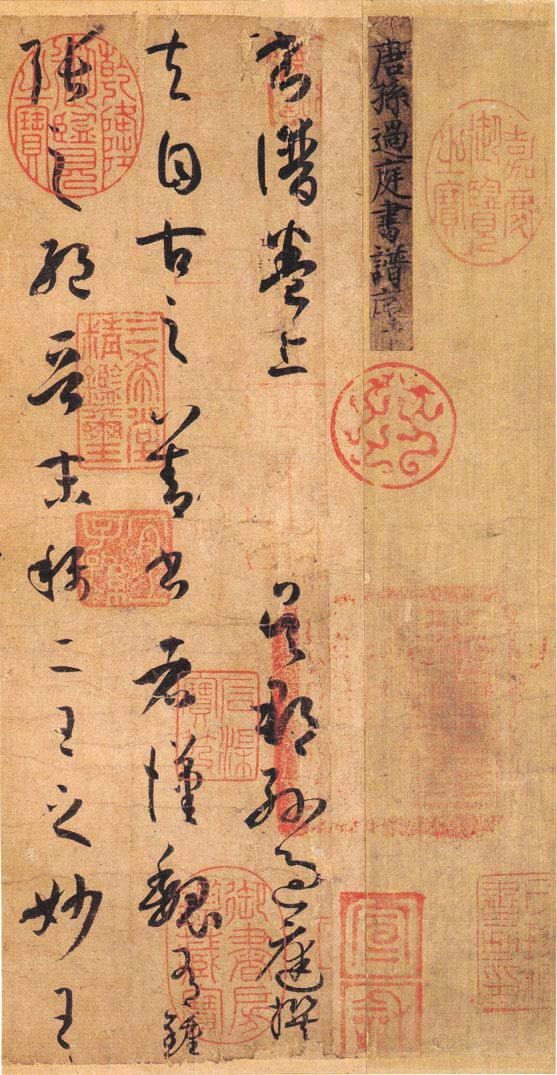 嘉慶御覽之寶
唐孫過庭書譜序
書譜卷上 吳郡孫過庭撰
夫自古之善書者漢魏有鍾
張之絕晉末稱二王之妙王
乾隆御覽之寶
三希堂精鑑璽
宜子孫
石渠寶笈
御書房鑑藏寶
宣和